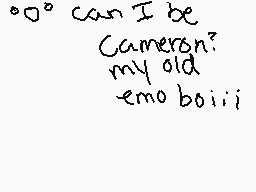 °o° can I be
Cameron?
my old
emo boiii